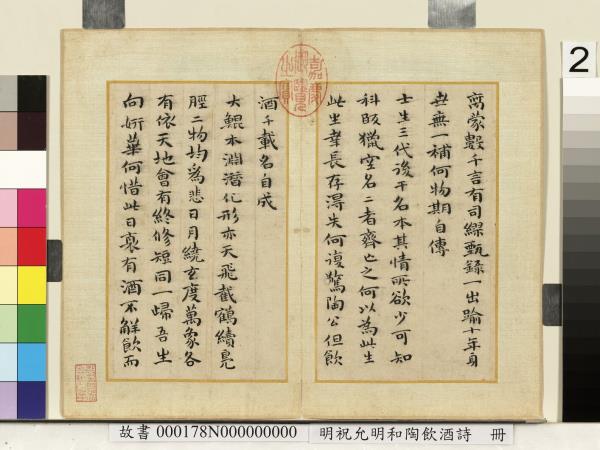 千言有司繆甄錄一出踰十年身
世無一補何物期自傳
士生三代後干名本其情所欲少可知
科既獵空名二者齊亡之何以為此生
此生幸長存得失何復驚陶公但飲
酒千載名自成
大鯤本淵潛化形亦天飛截鶴續鳧
脛二物均為悲日月繞玄度萬象各
有依天地會有終修短同一歸吾生
向妍華何惜此日衰有酒不解飲而
嘉慶御覽之寶
2
故書 000178N000000000 明祝允明和陶飲酒詩 冊